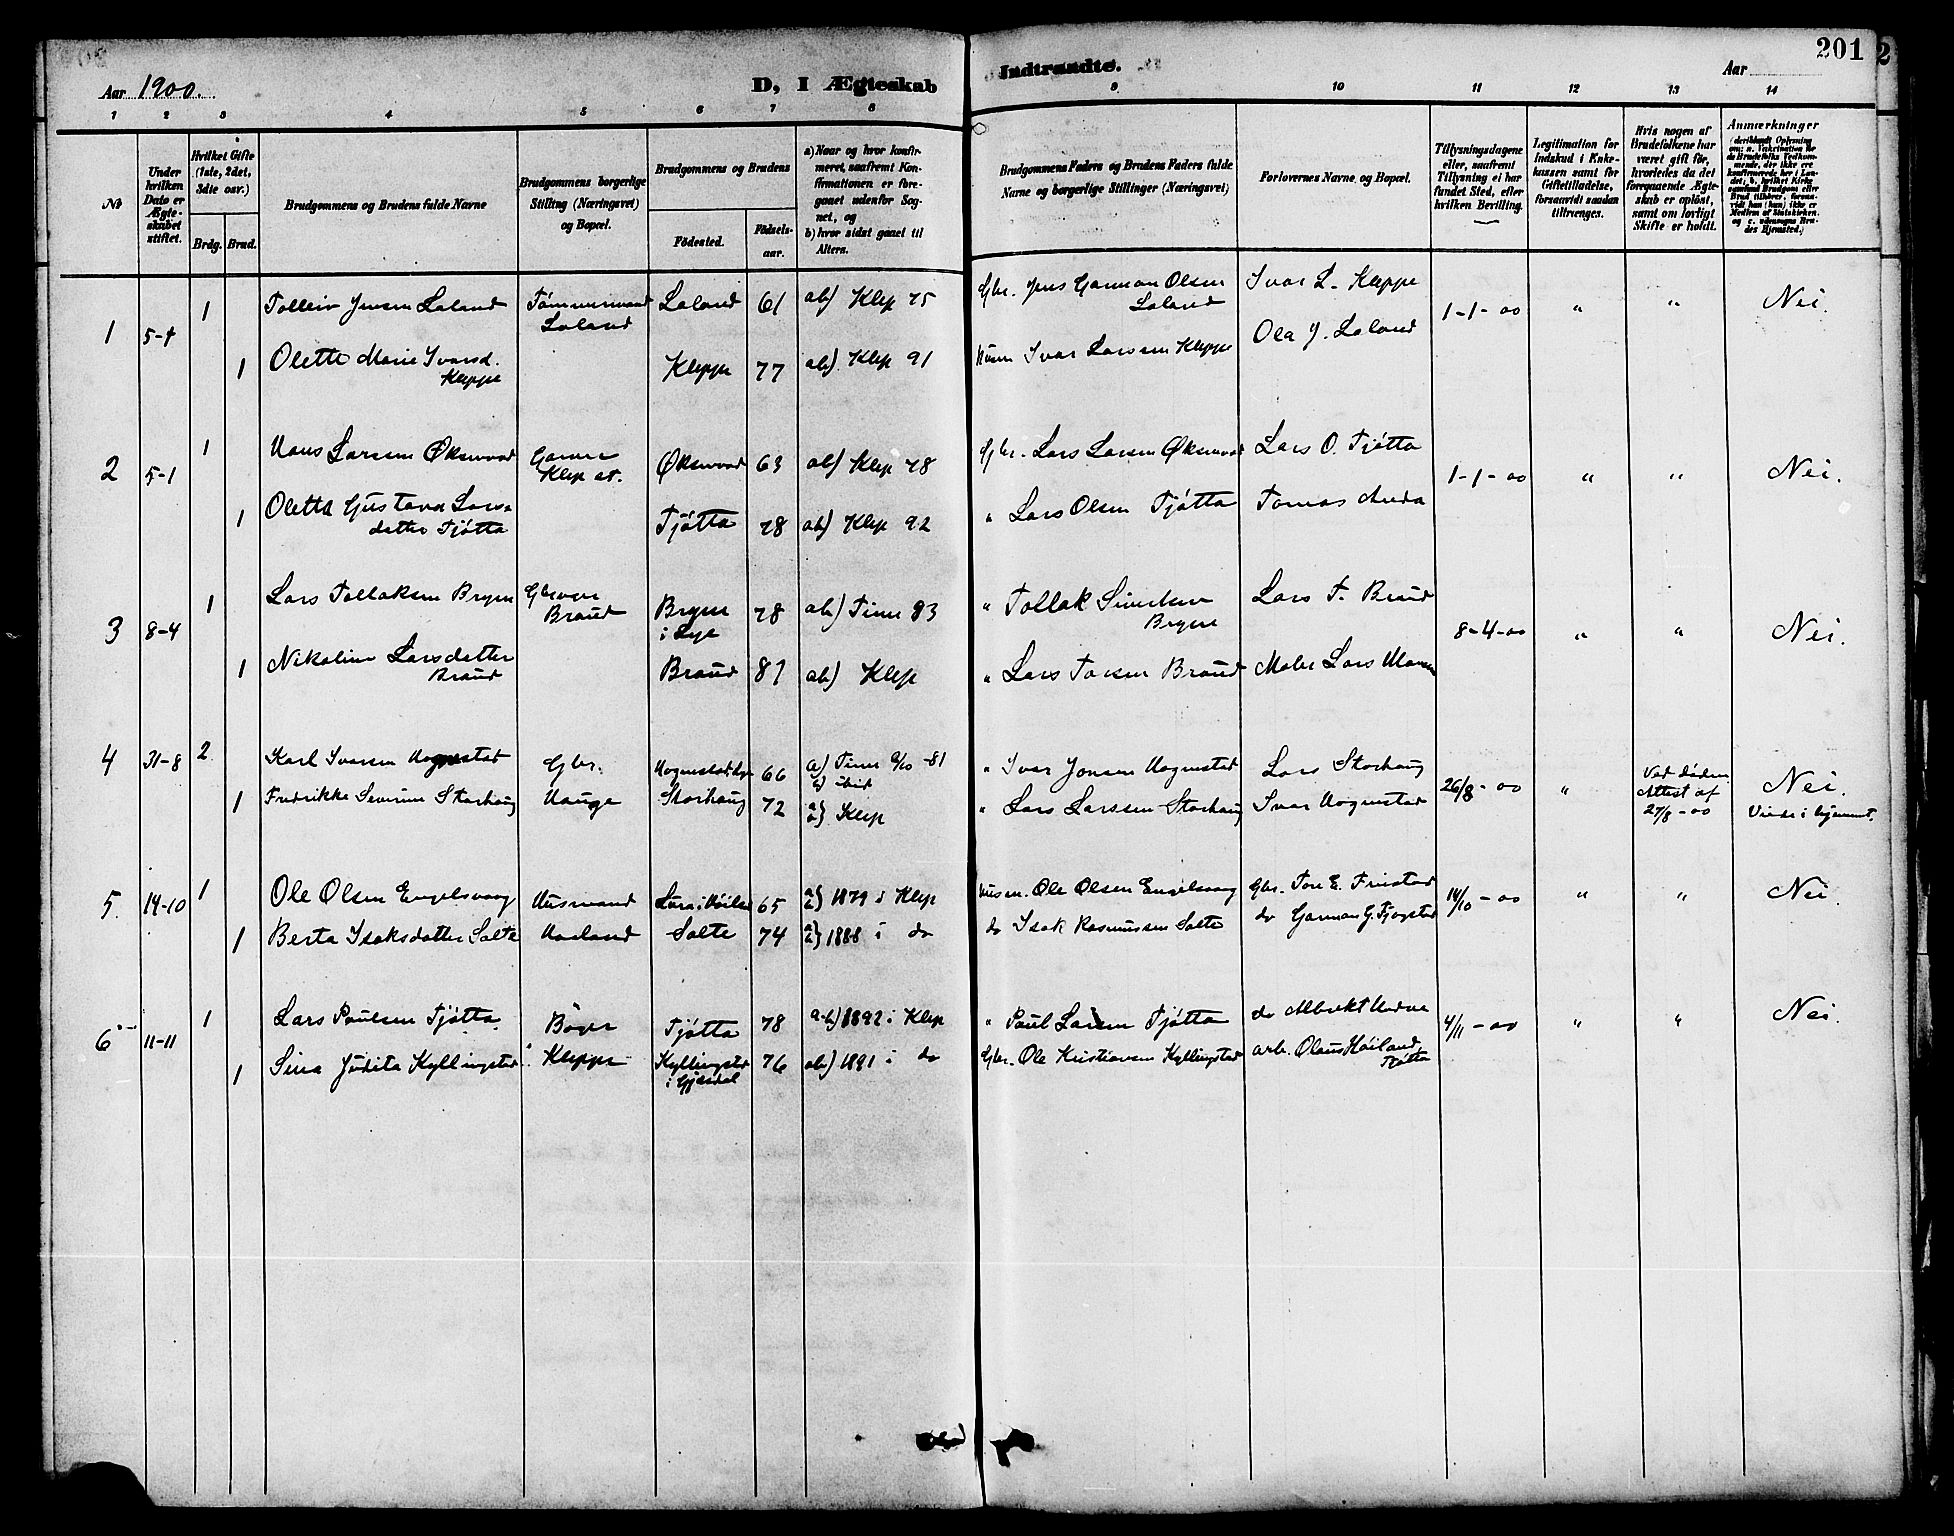 201
Aar 1900.
D, I Ægteskab Indtraadte.
Aar
1 2 3 4 5 6 7 8 9 10 11 12 13 14
No
Under hvilken Dato er Ægteskabet stiftet.
Hvilket Gifte (1ste, 2det, 3die osv.)
Brdg. Brud.
Brudgommens og Brudens fulde Navne
Brudgommens borgerlige Stilling (Næringsvei) og Bopæl.
Brudgommens og Brudens
Fødested. Fødselsaar.
a) Naar og hvor konfirmeret, saafremt Konfirmationen er foregaaet udenfor Sognet, og
b) hvor sidst gaaet til Alters.
Brudgommens Faders og Brudens Faders fulde Navne og borgerlige Stillinger (Næringsvei)
Forlovernes Navne og Bopæl.
Tillysningsdagene eller, saafremt Tillysning ei har fundet Sted, efter hvilken Bevilling.
Legitimation for Indskud i Enkekassen samt for Giftetilladelse, forsaavidt saadan tiltrænges.
Hvis nogen af Brudefolkene har været gift før, hvorledes da det foregaaende Ægteskab er opløst, samt om lovligt Skifte er holdt.
Anmærkninger
1 5-4 1 Tolleiv Jensen Laland Tømmermand Laland Laland 61 ab) Klep 75 Gbr. Jens Garman Olsen Laland Ivar L. Kleppe 1-1-00 " " Nei.
1 Olette Marie Ivarsd. Kleppe Kleppe 77 ab) Klep 91 Husm Ivar Larssen Kleppe Ola J. Laland
2 5-1 1 Hans Larsen Øksnvad Garver Klep st. Øksnvad 63 ab) Klep 78 Gbr. Lars Larsen Øksnvad Lars O. Tjøtta 1-1-00 " " Nei.
1 Oletta Gustava Larsdetter Tjøtta Tjøtta 78 ab) Klep 92 " Lars Olsen Tjøtta Tomas Anda
3 8-4 1 Lars Tollaksen Bryne Braud Bryne i Lye 78 ab) Time 93 " Tollak Sivertsen Bryne Lars T. Braud 8-4-00 " " Nei.
1 Nikoline Larsdetter Braud Braud 81 ab) Klep " Lars Torsen Braud Maler Lars
4 31-8 2 Karl Ivarsen Hognestad Gbr. 66 a) Time 2/10 -81 b) ibid " Ivar Jonsen Hognestad Lars Storhaug 26/8-00 " Ved døden Attest af 27/8-00 Nei. Viede i hjemmet.
1 Fredrikke Severine Storhaug Hauge Storhaug 72 a b} Klep " Lars Larssen Storhaug Ivar Hognestad
5. 14-10 1 Ole Olsen Engelsvaag Husmand Lura i Høiland 65 a b} 1879 i Klep Husm. Ole Olsen Engelsvaag Gbr. Tore E. Friestad 14/10-00 " " Nei.
1 Berta Isaksdatter Salte Haaland Salte 74 a b} 1888 i do do Isak Rasmussen Salte do Garman G. Tjøgstad
6 11-11 1 Lars Paulsen Tjøtta Bøver Tjøtta 78 a-b) 1892 i Klep " Paul Larsen Tjøtta do Albrekt 4/11-00 " " Nei.
1 Sina Judita Kyllingstad Kleppe Kyllingstad i Gjesdal 76 ab) 1891 i do Gbr. Ole Kristiansen Kyllingstad arb. Olaus Høiland Tjøtta